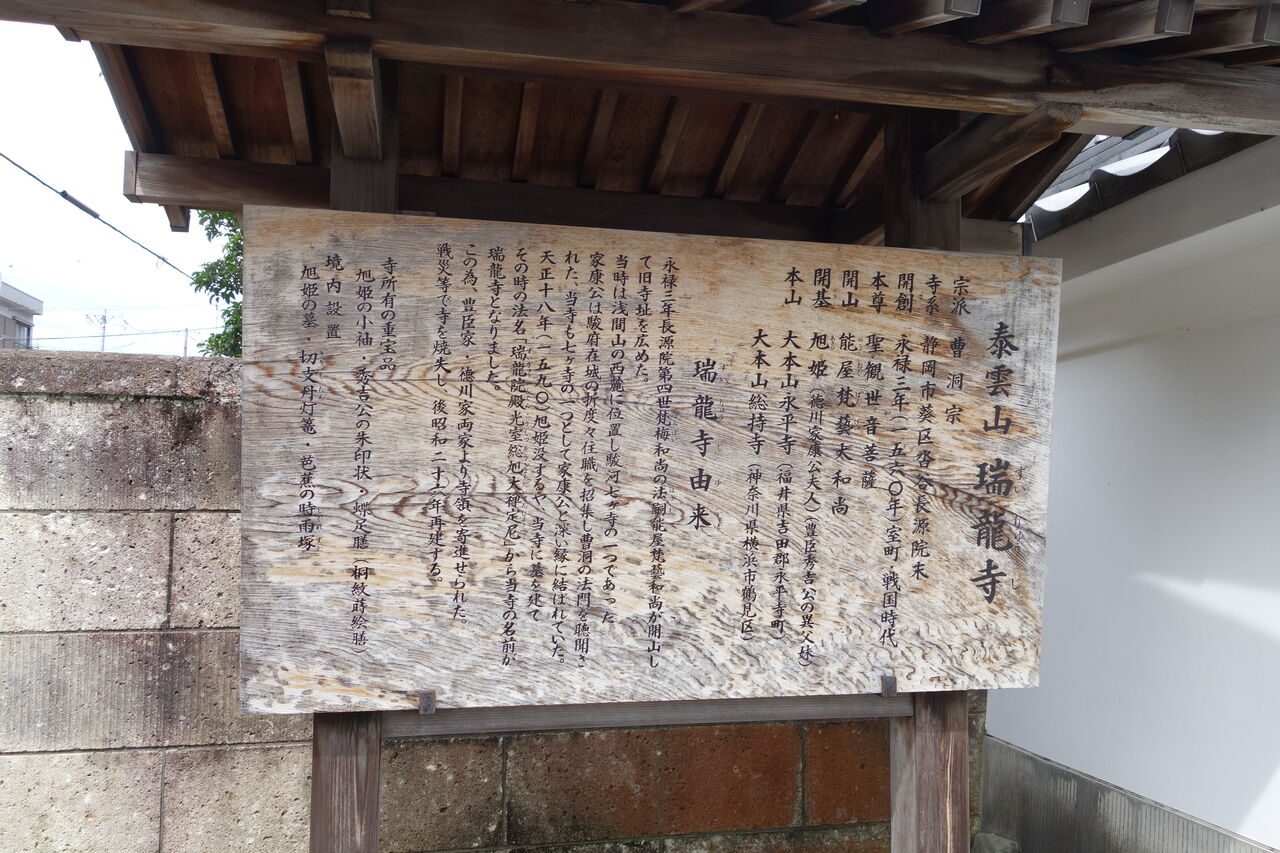 泰雲山 瑞龍寺
宗派 曹洞宗
寺系 静岡市葵区沓谷長源院末
開創 永禄三年(一五六〇年)室町・戦国時代
本尊 聖観世音菩薩
開山 能屋梵藝大和尚
開基 旭姫(徳川家康公夫人)(豊臣秀吉公の異父妹)
本山 大本山永平寺(福井県吉田郡永平寺町)
大本山総持寺(神奈川県横浜市鶴見区)
瑞龍寺由来
永禄三年長源院第四世梵梅和尚の法嗣能屋梵藝和尚が開山し
て旧寺址を広めた。
当時は浅間山の西麓に位置し駿河七ヶ寺の一つであった
家康公は駿府在城の折度々住職を招集し曹洞の法門を聴聞さ
れた、当寺も七ヶ寺の一つとして家康公と深い縁に結ばれていた。
天正十八年(一五九〇)旭姫没するや、当寺に墓を建て
その時の法名「瑞龍院殿光室総旭大禅定尼」から当寺の名前が
瑞龍寺となりました。
この為、豊臣家・徳川家両家より寺領を寄進せられた。
戦災等で寺を焼失し、後昭和二十六年再建する。
寺所有の重宝品
旭姫の小袖・秀吉公の朱印状・蝶足膳(桐紋蒔絵膳)
境内設置
旭姫の墓・切支丹灯篭 芭蕉の時雨塚